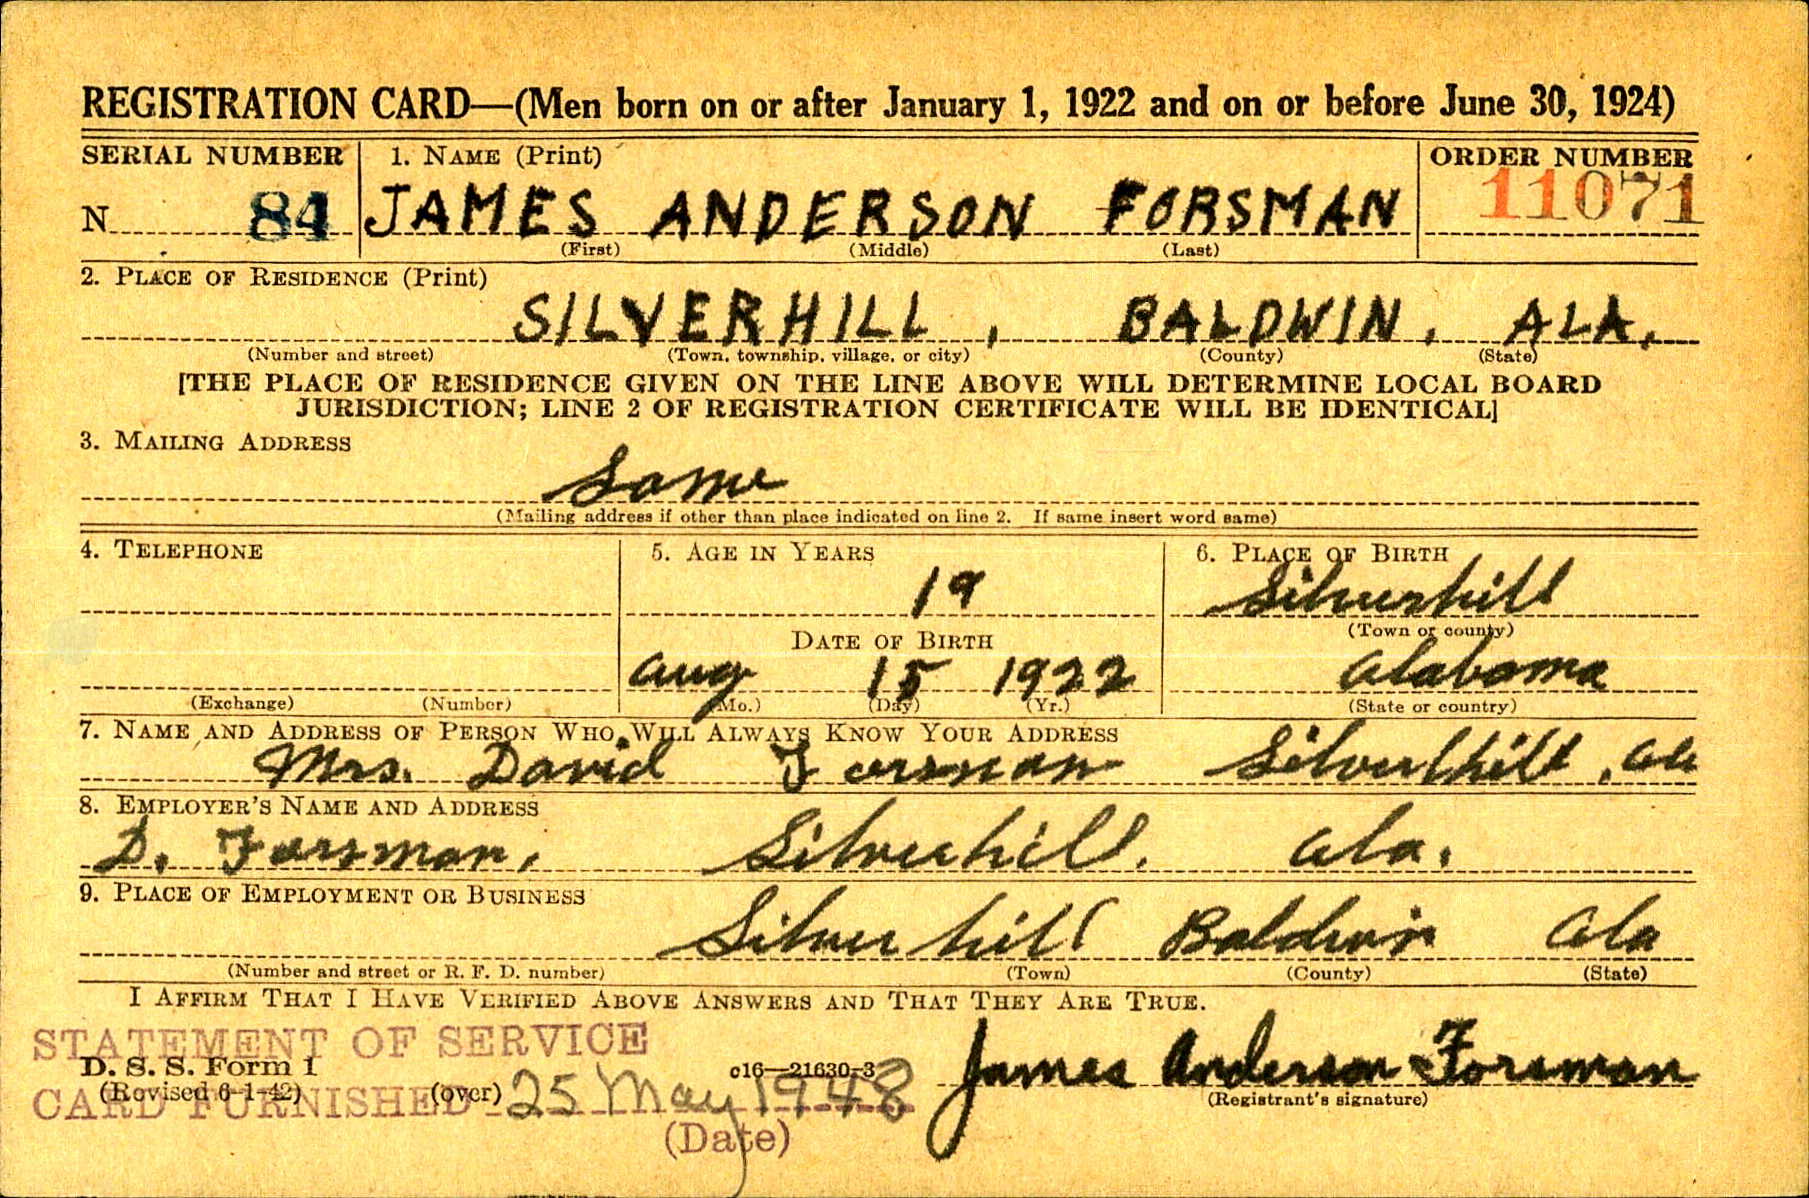 REGISTRATION CARD—(Men born on or after January 1, 1922 and on or before June 30, 1924)
SERIAL NUMBER 1. NAME (Print) ORDER NUMBER
N 84 JAMES ANDERSON FORSMAN 11071
(First) (Middle) (Last)
2. PLACE OF RESIDENCE (Print)
SILVERHILL, BALDWIN, ALA.
(Number and street) (Town, township, village, or city) (County) (State)
[THE PLACE OF RESIDENCE GIVEN ON THE LINE ABOVE WILL DETERMINE LOCAL BOARD
JURISDICTION; LINE 2 OF REGISTRATION CERTIFICATE WILL BE IDENTICAL]
3. MAILING ADDRESS
Same
(Mailing address if other than place indicated on line 2. If same insert word same)
4. TELEPHONE 5. AGE IN YEARS 6. PLACE OF BIRTH
19 Silverhill
DATE OF BIRTH (Town or county)
Aug 15 1922 Alabama
(Exchange) (Number) (Mo.) (Day) (Yr.) (State or country)
7. NAME AND ADDRESS OF PERSON WHO WILL ALWAYS KNOW YOUR ADDRESS
Mrs. David Forsman Silverhill, Ala
8. EMPLOYER'S NAME AND ADDRESS
D. Forsman, Silverhill. Ala.
9. PLACE OF EMPLOYMENT OR BUSINESS
Silverhill Baldwin Ala
(Number and street or R. F. D. number) (Town) (County) (State)
I AFFIRM THAT I HAVE VERIFIED ABOVE ANSWERS AND THAT THEY ARE TRUE.
STATEMENT OF SERVICE
D. S. S. Form 1 c16—21630-3 James Anderson Forsman
(Revised 6-1-42) (over) (Registrant's signature)
CARD FURNISHED 25 May 1948
(Date)